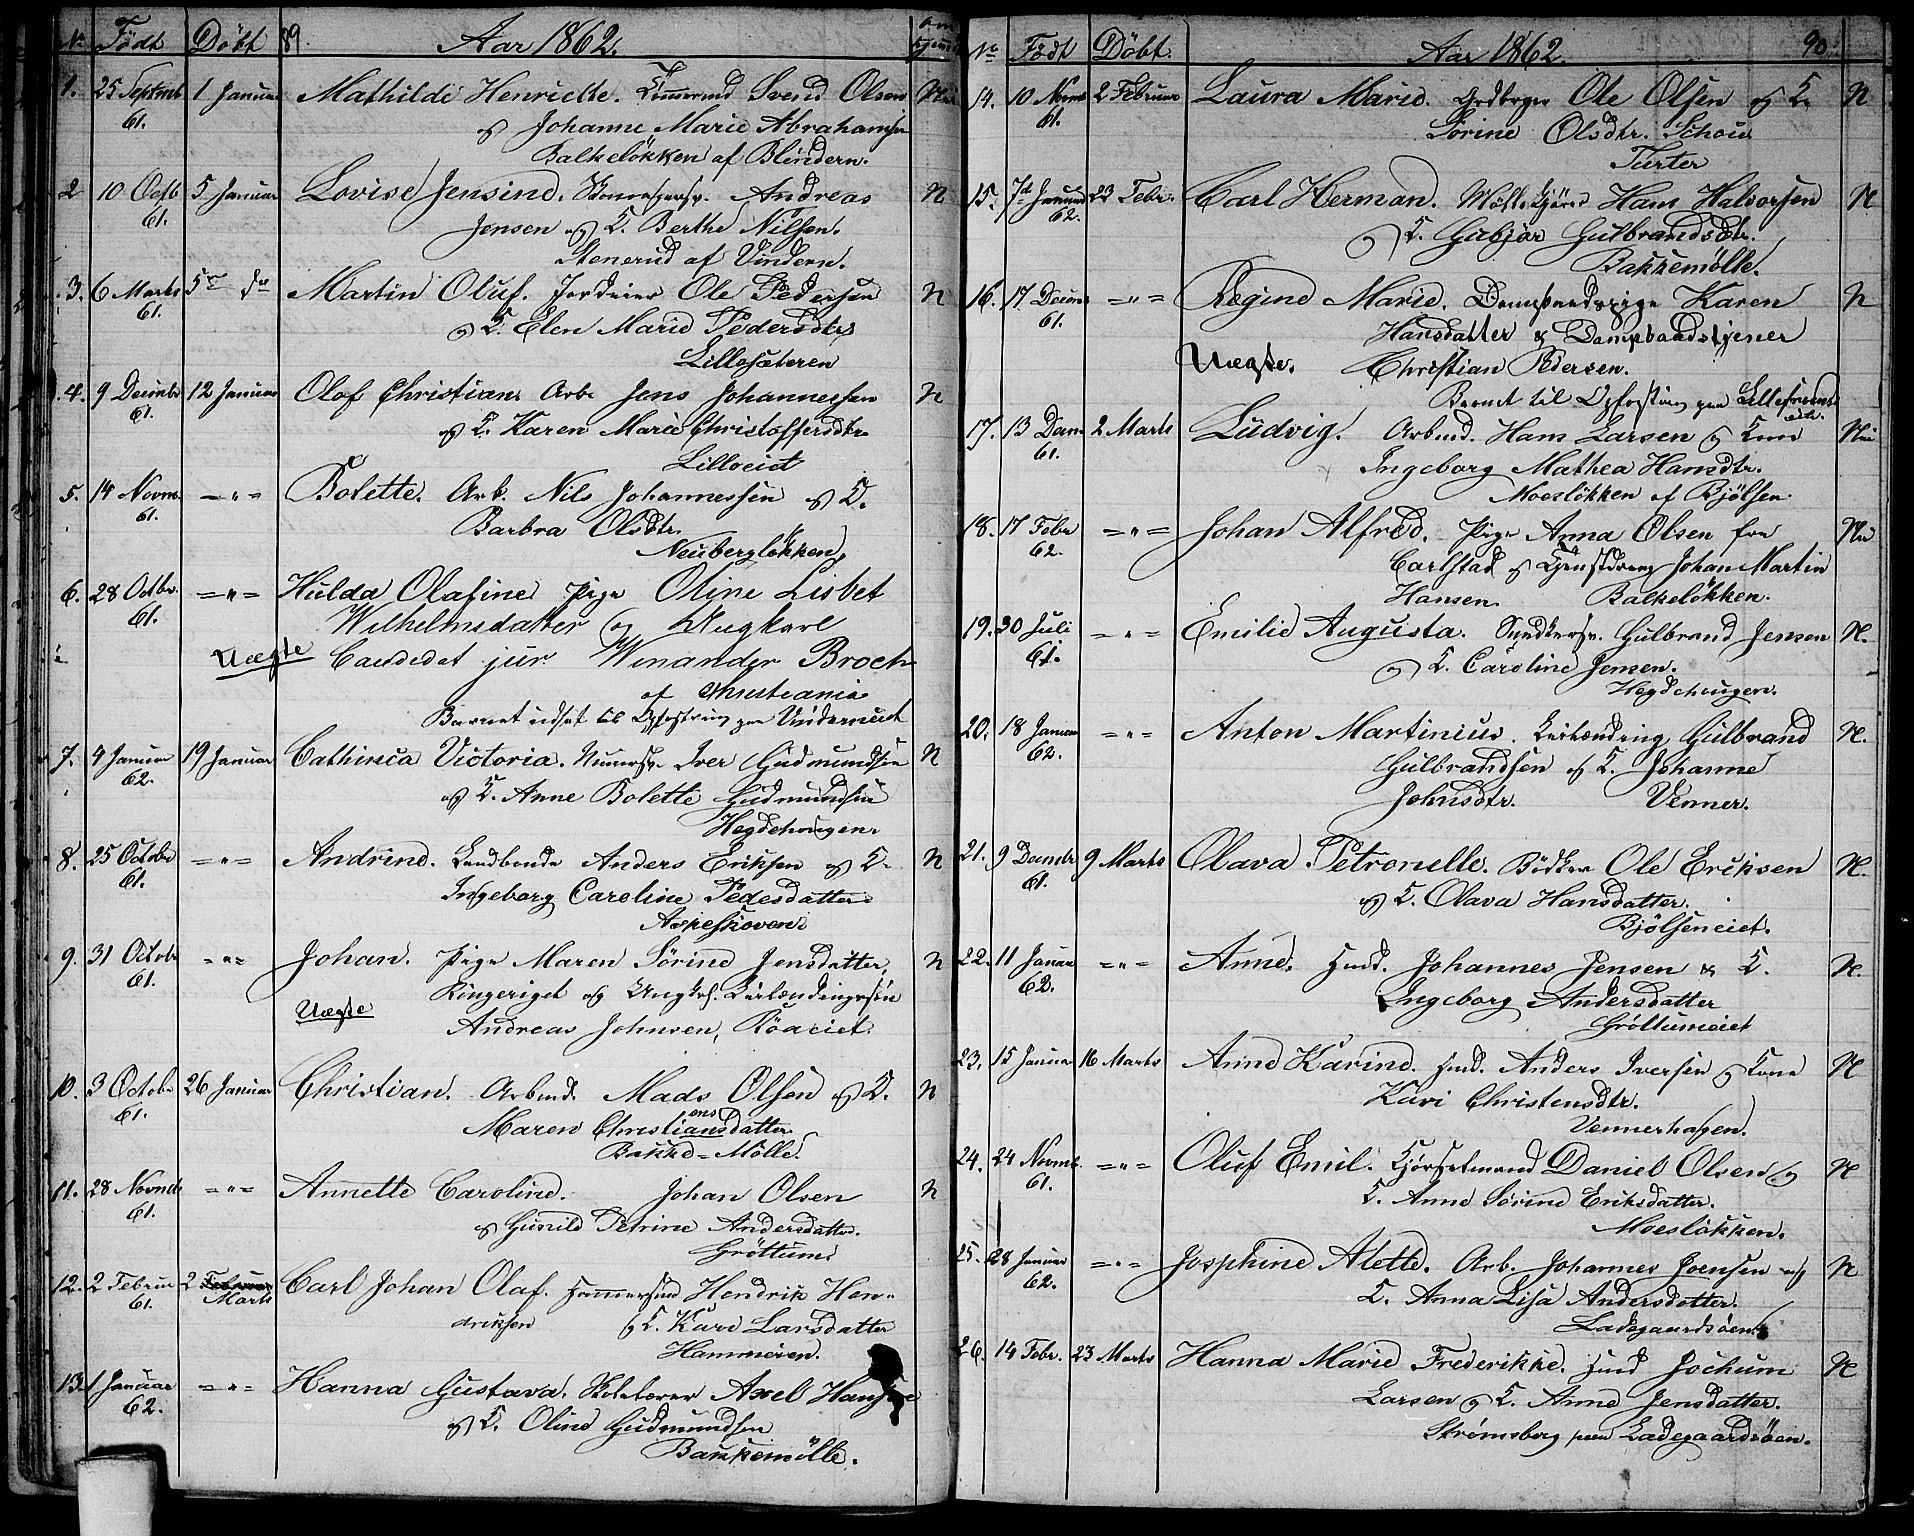 No Födt Döbt 89. Aar 1862.
1. 25 Septmb 1 Januar Mathilde Henriette. Tömmermd Svend Olsen Nei
61. og Johanne Marie Abrahamsen
Balkeløkken af Blindern.
2 10 Octb 5 Januar Lovise Jensine. Andreas N
61. Jensen og K. Berthe Nilsen.
Stenerud af Vindern.
3. 6 Marts 5te do Martin Oluf. Jordeier Ole Pedersen N
61. og K. Elen Marie Pedersdtr
Lillesæteren
4. 9 Decmbr 12 Januar Olaf Christian. Arb. Jens Johannessen N
61. og K. Karen Marie Christoffersdtr
Lilloeiet
5. 14 Novm. — " — Bolette. Arb. Nils Johannessen og K.
61. Barbra Olsdtr.
Neubergløkken.
6. 28 Octbr. = " = Hulda Olafine Pige Oline Lisbet
61. Wilhelmsdatter og Ungkarl
Uægte Candidat jur. Winander Broch
af Christiania
Barnet udsat til Opfostring paa Vinderneiet
7. 4 Januar 19 Januar Cathinca Victoria. Murersv. Iver Gudmundsen N
62. og K. Anne Bolette Gudmundsen
Hegdehougen.
8. 25 October = " = Andrine. Landbonde Anders Eriksen og K. N
61. Ingeborg Caroline Pedersdatter
Askeskoven.
9. 31 Octobr = " = Johan. Pige Maren Sörine Jensdatter, N
61. Ringeriget og Ungk. Leilændingssön
Uægte Andreas Johnsen, Röaeiet.
10. 3 Octobr 26 Januar Christian. Arbmd. Mads Olsen og K. N
61. Maren Christiansdatter ens
Bakke-Mölle.
11. 28 Novmb = " = Annette Caroline. Johan Olsen N
61. og Gunild Petrine Andersdatter.
Gröttum.
12. 2 Februar 2 Februar Carl Johan Olaf. Hendrik Hen-
61. Marts driksen og K. Kari Larsdatter
Hammeren.
13. 1 Januar = " = Hanna Gustava. Skolelærer Axel Hansen
62. og K. Oline Gudmundsen
Bakkemölle.
No Födt Döbt. Aar 1862. 90.
14. 10 Novmb 2 Februar Laura Marie. Ole Olsen og K. N
61. Sörine Olsdtr. Schou
Turter
15. 7d Januar 23 Febr. Carl Herman. Hans Halvorsen N
62. og K. Gubjør Gulbrandsdtr.
Bakkemølle.
16. 17 Decmb = " = Regine Marie. Dampbaadspige Karen N
61. Hansdatter & Dampbaadstjener
Uægte. Christian Pedersen.
Barnet til Opfostring paa
17. 13 Decm 2 Marts Ludvig. Arbmd. Hans Larsen og Kone Nei
61. Ingeborg Mathea Hansdtr.
Moesløkken af Bjølsen.
18. 17 Febr = " = Johan Alfred. Pige Anna Olsen fra Nei
62. Carlstad og Tjenstdreng Johan Martin
Hansen. Balkeløkken.
19. 30 Juli = " = Emilie Augusta. Snedkersv. Gulbrand Jensen N.
61. og K. Caroline Jensen.
Hegdehougen.
20. 18 Januar = " = Anton Martinius. Leilænding Gulbrand N.
62. Gulbrandsen og K. Johanne
Johnsdtr. Venner.
21. 9 Decmbr 9 Marts Olava Petronelle. Bödker Ole Eriksen N.
61. og K. Olava Hansdatter.
Bjölseneiet.
22. 11 Januar = " = Anne. Husmd. Johannes Jensen & K. N.
62. Ingeborg Andersdatter
Gröttumeiet
23. 15 Januar 16 Marts Anne Karine. Husmd. Anders Iversen og Kone N
Kari Christensdtr.
Vennerhagen.
24. 24 Novmb. = " = Oluf Emil. Daniel Olsen og N
61. K. Anne Sörine Eriksdatter.
Moesløkken.
25. 28 Januar = " = Josephine Alette. Arb. Johannes Joensen og N
62. K. Anna Lisa Andersdatter.
Ladegaardsöen.
26. 14 Febr. 23 Marts Hanna Marie Frederikke. Husmd Jochum N
Larsen og K. Anne Jensdatter.
Strømsberg paa Ladegaardsöen.